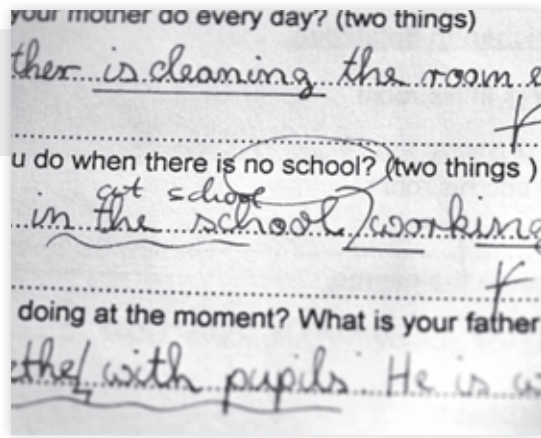 your mother do every day? (two things)
ther is cleaning the room
u do when there is no school? (two things )
at school
in the school working
doing at the moment? What is your father
the with pupils. He is